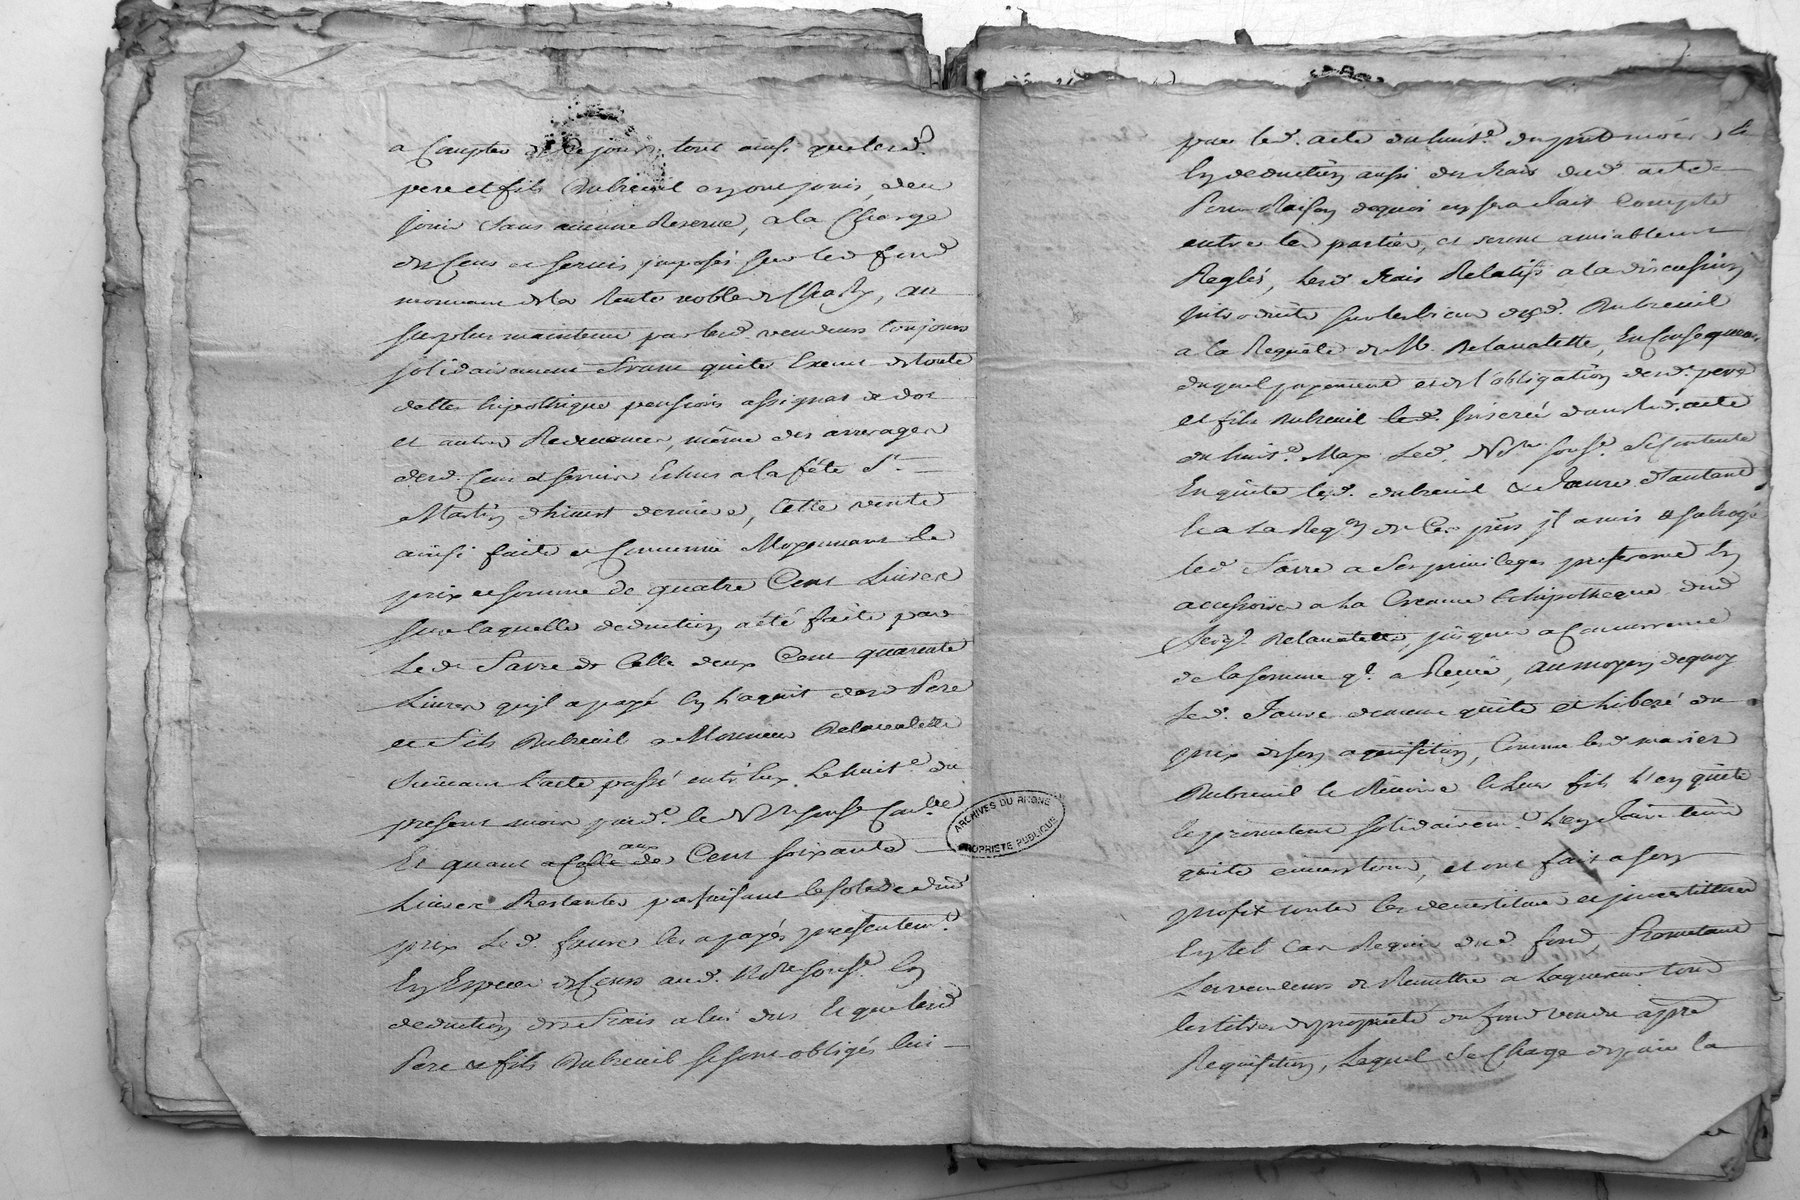 a Compter de ce jour tout ainsi que lesd.
pere et fils Dubreuil en ont jouis, deu
jouir sans aucune Reserve, a la Charge
des Cens et servis imposés sur led. fond
mouvant de la Rente noble de
surplus maintenu par lesd. vendeurs toujours
solidairement franc quitte Exemt de toute
dettes hipothèque pensions assignat de dot
et autres Redevances, même des arrerages
desd. Cens et servis Echus a la fête St.
Martin d'hivert derniere, Cette vente
ainsi faite et Convenüe Moyennant le
prix et somme de quatre Cent Livres
sur laquelle deduction a été faite par
Le d. Favre de Celle deux Cent quarante
Livres qu'il a payé En l'aquit desd. Pere
et Fils Dubreuil a Monsieur Delavalette
Suivant l'acte passé entr'Eux Le huit.e du
present mois pard.t le N.re sousd.
Et quant a Celle aux Cent soixante
Livres Restantes parfaisant le solde dud.
prix Led. favre les a payés presentem.t
En Especes de Cours aud. N.re sousd. En
deduction des Frais a lui dus Et que lesd.
Pere et fils Dubreuil se sont obligés lui
ARCHIVES DU RHONE
PROPRIETE PUBLIQUE
par led. acte du huit.e du p.nt mois Et
En deduction aussi des frais dud. acte
Pour Raison de quoi en sera fait Compte
entre les parties, et seront amiablement
Reglés, Lesd. frais Relatifs a la discussion
introduite sur les biens desd. Dubreuil
a la Requête de M. Delavalette, En Consequence
duquel payement et de l'obligation desd. pere
et fils Dubreuil inserée dans led. acte
du huit.e May Led. N.re sousd. se Contente
En quitte lesd. dubreuil & favre d'autant
Et a La Req.on de Ces p.ties il a mis & subrogé
led. Favre a ses privileges preference En
accessoires a La Creance Et hipotheque dud.
Delavalette, jusques a Concurrence
de la somme q.l a Reçüe, au moyen de quoy
Led. Favre demeure quitte et Liberé du
prix de son aquisition, Comme lesd. mariés
Dubreuil Et Leur fils L'en quitte
Et promettent solidairem.t L'en faire tenir
quitte envers tous, et ont fait a son
profit toutes les devestitures et jnvestitures
En tel Cas Requis dud. fond, Promettant
Les vendeurs de Remettre a Laquereur tous
Les titres de propriété du fond vendu a p.re
Requisition, Lequel se Charge de faire la